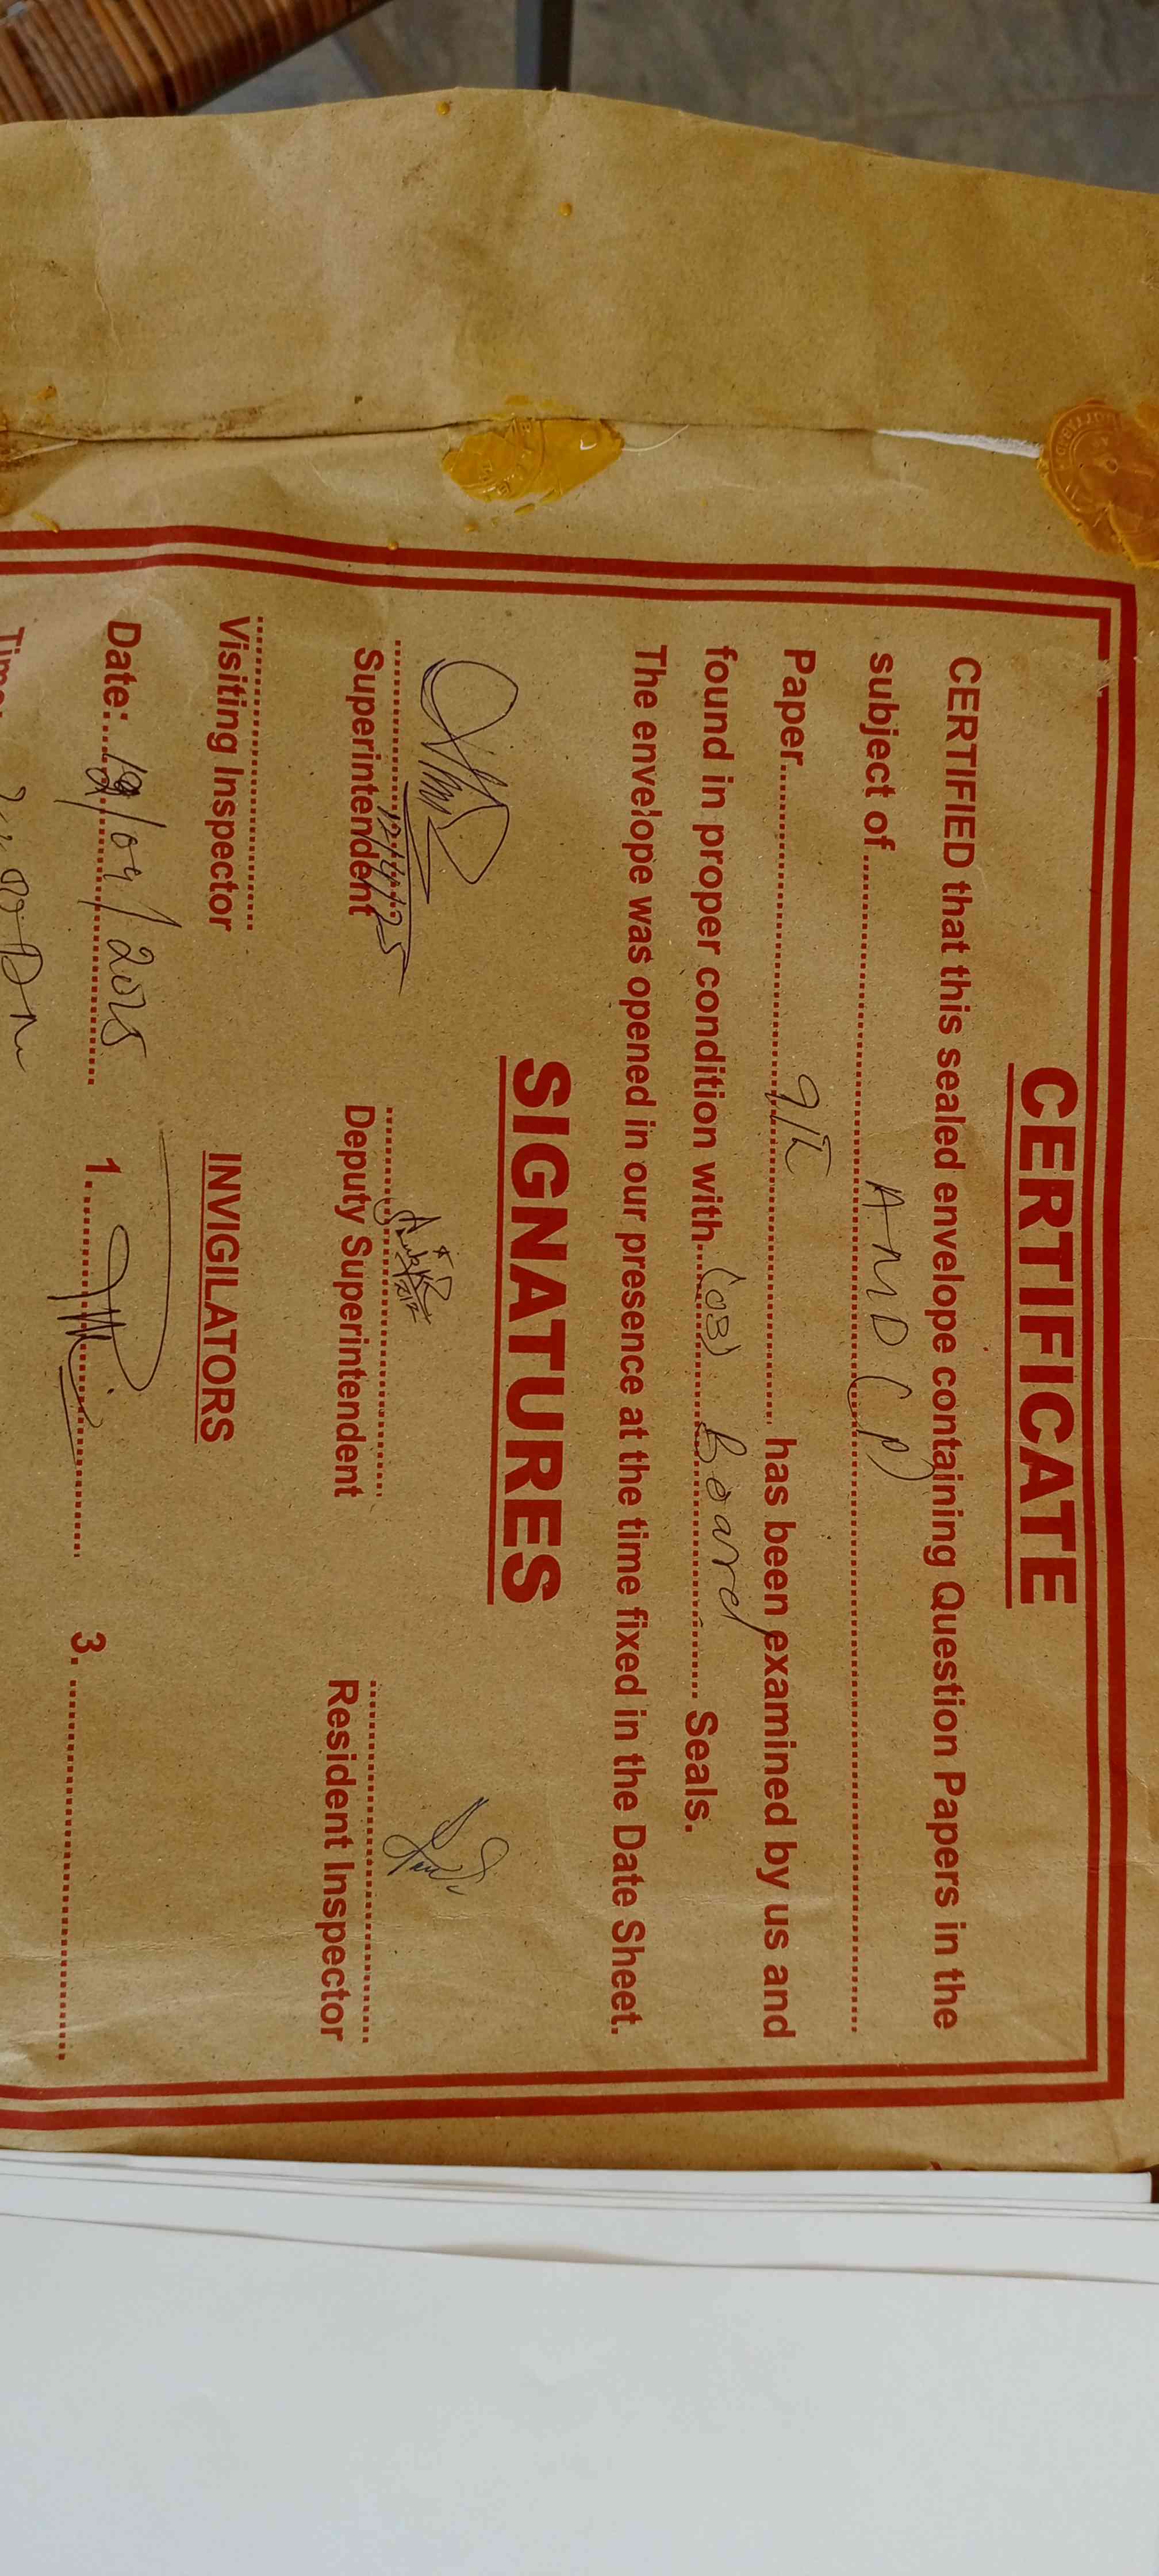 CERTIFICATE
CERTIFIED that this sealed envelope containing Question Papers in the
subject of AMD (P)
Paper has been examined by us and
found in proper condition with (03) Board Seals.
The envelope was opened in our presence at the time fixed in the Date Sheet.
SIGNATURES
12/4/25
Superintendent Deputy Superintendent Resident Inspector
Visiting Inspector
INVIGILATORS
Date: 12/04/2025 1. 3.